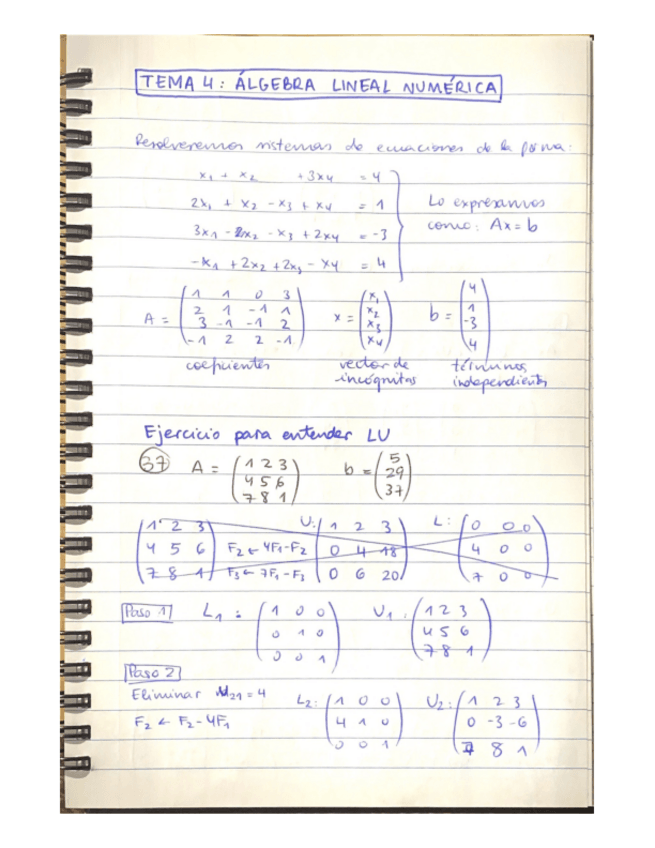 TEMA 4: ÁLGEBRA LINEAL NUMÉRICA
Resolveremos sistemas de ecuaciones de la forma:
x1 + x2 +3x4 = 4
2x1 + x2 - x3 + x4 = 1
3x1 - x2 - x3 + 2x4 = -3
-x1 + 2x2 + 2x3 - x4 = 4
Lo expresamos
como: Ax = b
A = (1 1 0 3
2 1 -1 1
3 -1 -1 2
-1 2 2 -1)
x = (x1
x2
x3
x4)
b = (4
1
-3
4)
coeficientes
vector de
incógnitas
términos
independientes
Ejercicio para entender LU
37 A = (1 2 3
4 5 6
7 8 1)
b = (5
29
37)
(1 2 3
4 5 6
7 8 1)
F2 ← 4F1-F2
F3 ← 7F1-F3
U: (1 2 3
0 4 18
0 6 20)
L: (0 0 0
4 0 0
7 0 0)
Paso 1
L1 : (1 0 0
0 1 0
0 0 1)
U1 : (1 2 3
4 5 6
7 8 1)
Paso 2
Eliminar u21 = 4
F2 ← F2-4F1
L2: (1 0 0
4 1 0
0 0 1)
U2: (1 2 3
0 -3 -6
7 8 1)